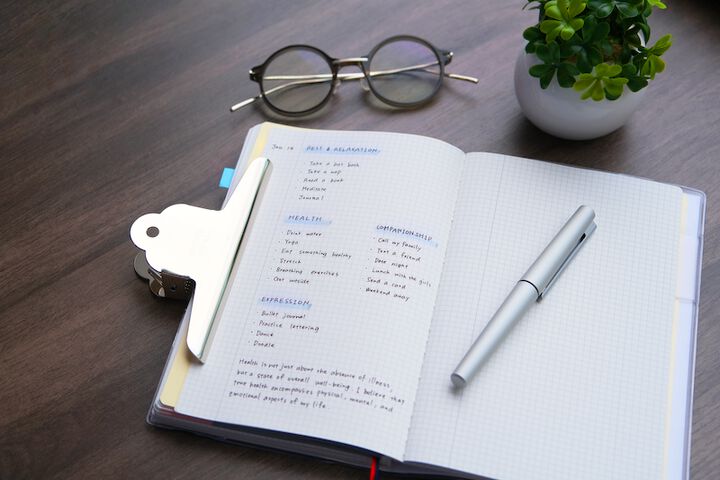 Jan 14
REST & RELAXATION
Take a hot bath
· Take a nap
· Read a book
· Meditate
Journal
HEALTH
· Drink water
· Yoga
· Eat something healthy
· Stretch
· Breathing exercises
· Get outside
COMPANIONSHIP
· Call my family
· Text a friend
· Date night
· Lunch with the girls
Send a card
Weekend away
EXPRESSION
· Bullet journal
· Practice lettering
· Dance
· Doodle
Health is not just about the absence of illness,
but a state of overall well-being. I believe that
true health encompasses physical, mental, and
emotional aspects of my life.